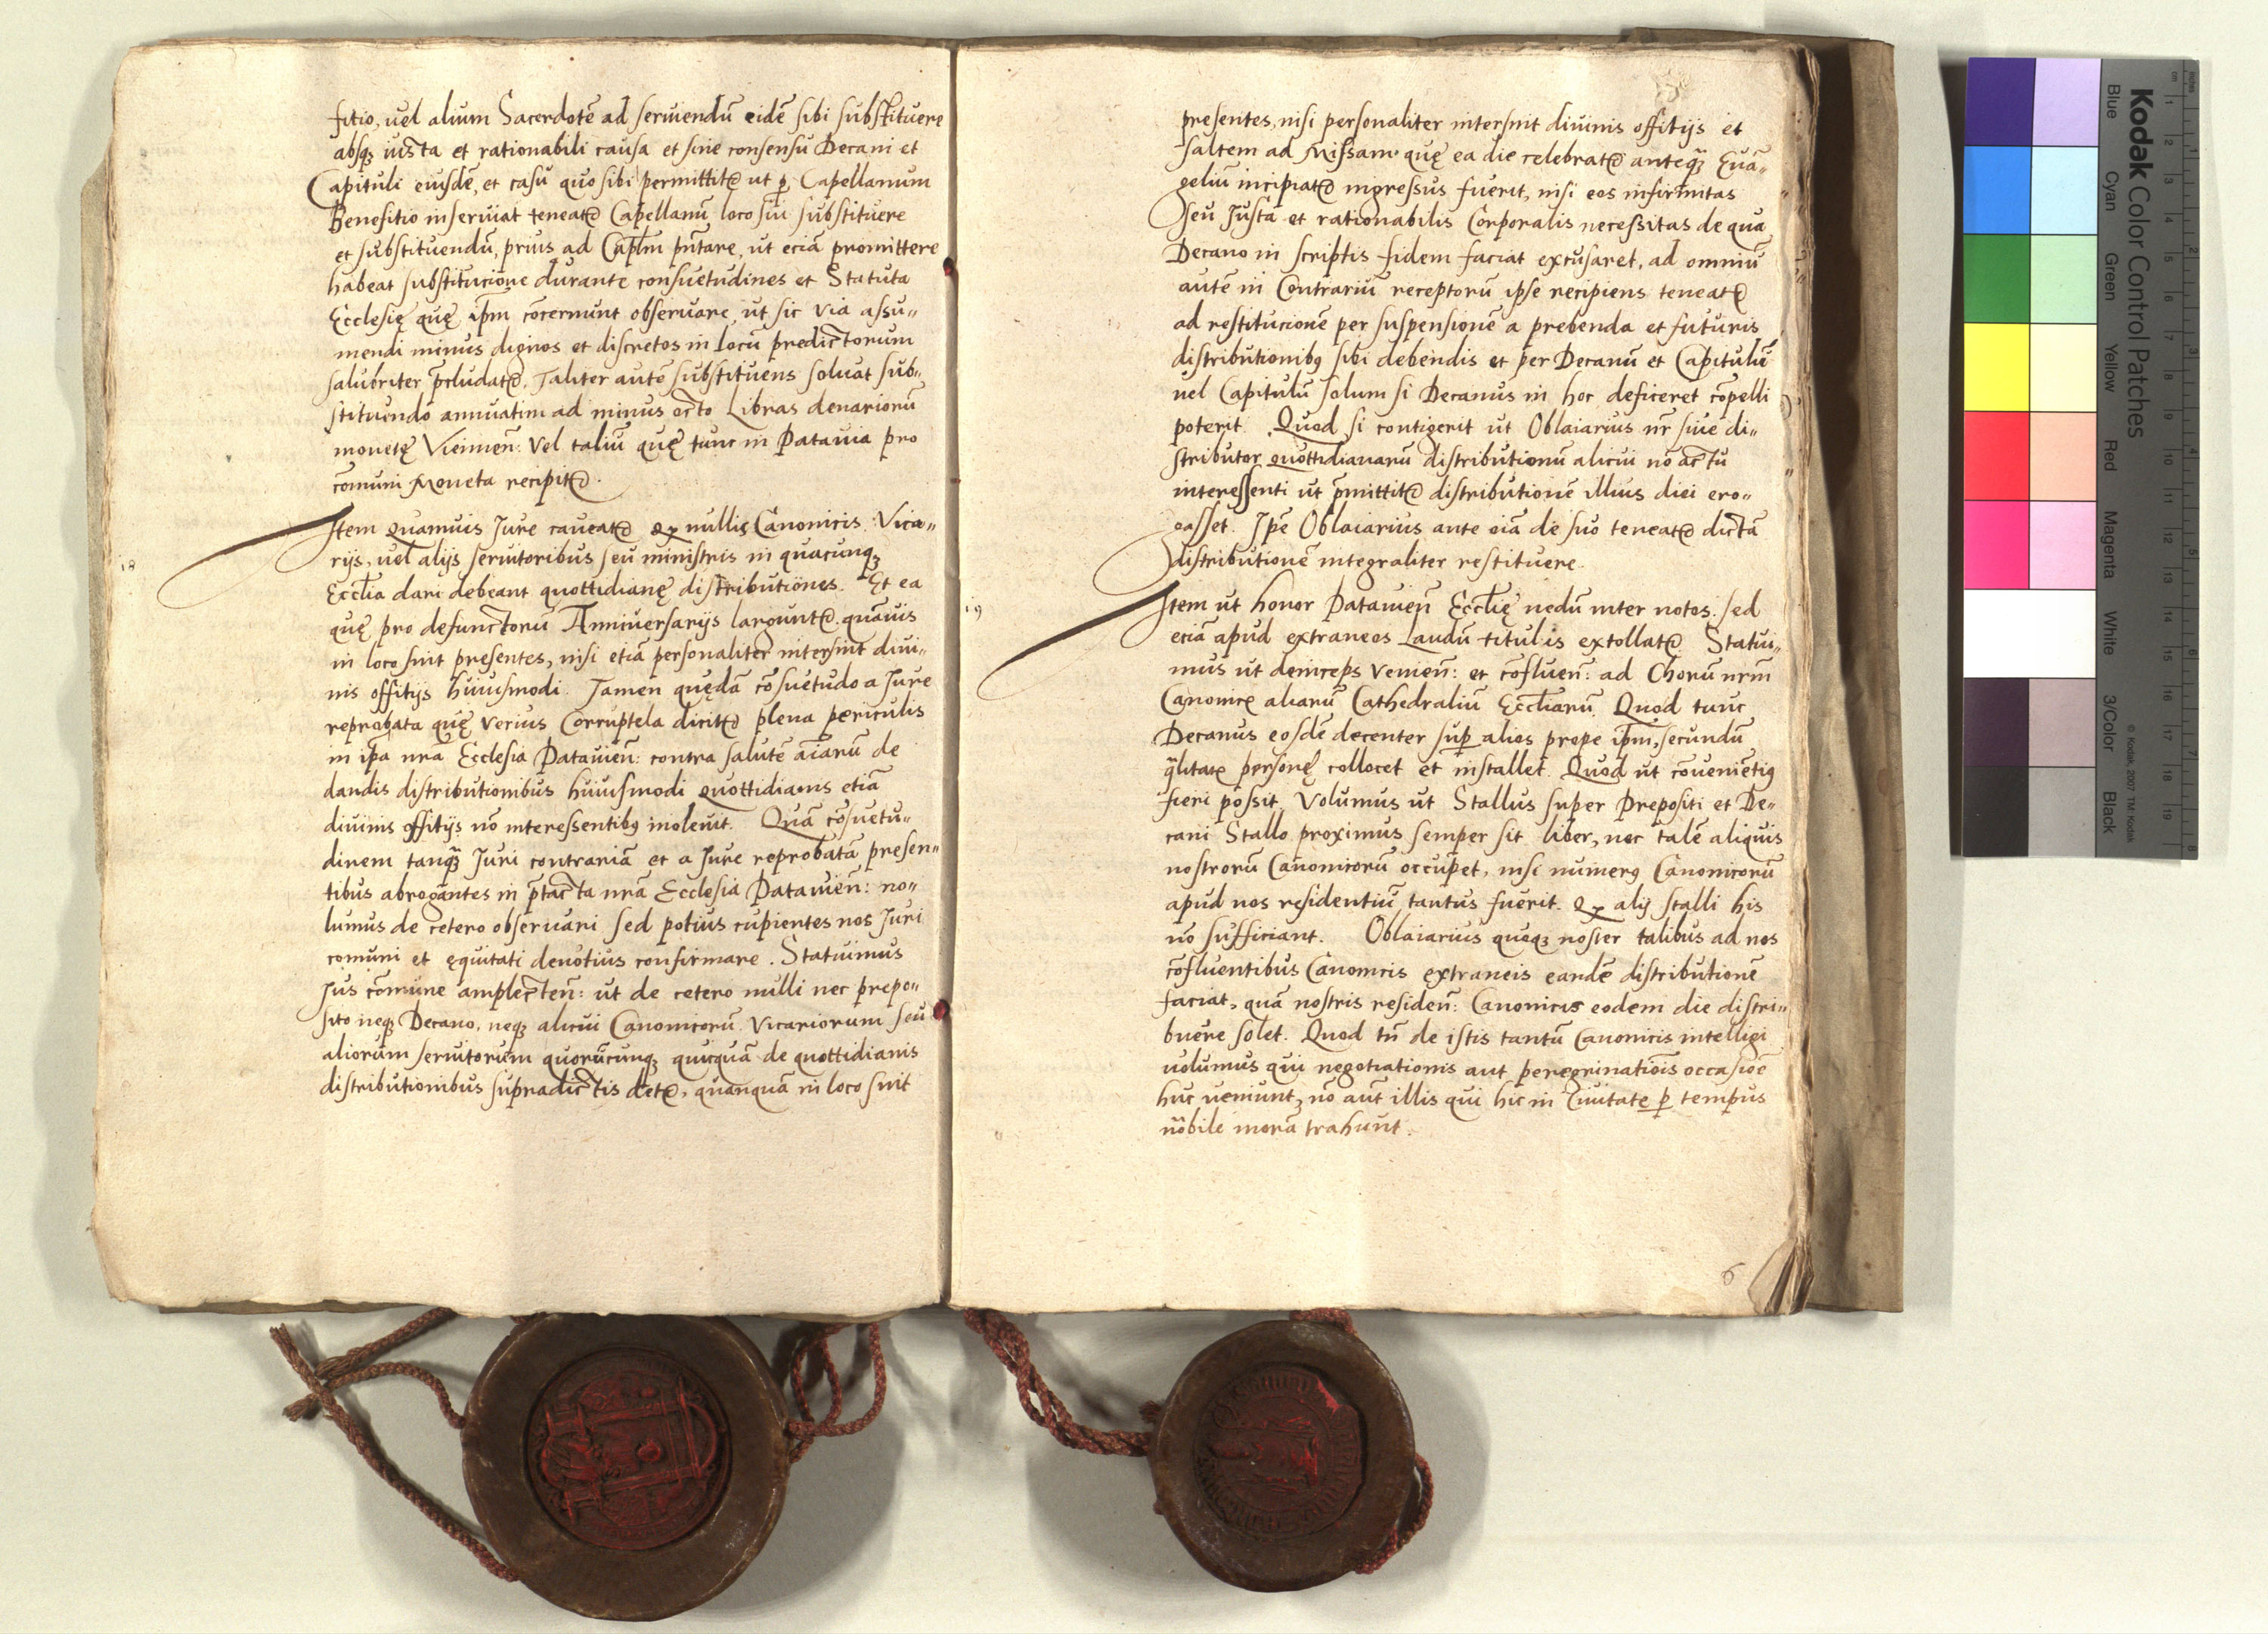 fitio, uel alium Sacerdotē ad seruiendū eidē sibi substituere
absq₃ iusta et rationabili causa et sine consensu Decani et
Capituli eiusdē, et casu quo sibi permittitr ut p Capellanum
Benefitio inseruiat teneatr Capellanū loco sui substituere
et substituendū, prius ad Caplm pn̄tare, ut eciā promittere
habeat substitucione durante consuetudines et Statuta
Ecclesię quę ipm cōcernunt obseruare, ut sic via assu„
mendi minus dignos et discretos in locū predictorum
salubriter p̄cludatr. Taliter autē substituens soluat sub„
stituendo annuatim ad minus octo Libras denariorū
monetę Viennen̄: Vel taliū quę tunc in Patauia pro
cōmuni Moneta recipitr.
18
Item quamuis Jure caueatr qz nullis Canonicis Vica„
rijs, uel alijs seruitoribus seu ministris in quacunq₃
Eccl̄ia dari debeant quottidianę distributiones. Et ea
quę pro defunctorū Anniuersarijs largiuntr. quāuis
in loco sint presentes, nisi etiā personaliter intersint diui„
nis offitijs huiusmodi. Tamen quędā cōsuetudo a Jure
reprobata quę verius Corruptela dicitr plena periculis
in ip̄a nrā Ecclesia Patauien̄: contra salutē aīarū de
dandis distributionibus huiusmodi quottidianis etiā
diuinis offitijs nō interessentibꝰ inoleuit. Quā cōsuetu„
dinem tanq̄₃ Juri contrariā et a Jure reprobatā presen„
tibus abrogantes in p̄tacta nrā Ecclesia Patauien̄: no„
lumus de cetero obseruari sed potius cupientes nos Juri
comuni et ęquitati deuotius confirmare. Statuimus
Jus cōmune amplecten̄: ut de cetero nulli nec prepo„
sito neq₃ Decano, neq₃ alicui Canonicorū Vicariorum seu
aliorum seruitorum quorūcunq₃ quicquā de quottidianis
distributionibus supradictis detr, quanquā in loco sint
presentes, nisi personaliter intersint diuinis offitijs et
saltem ad Missam quę ea die celebratr anteq̄₃ Euā„
geliū incipiatr ingressus fuerit, nisi eos infirmitas
seu Justa et rationabilis Corporalis necessitas de qua
Decano in scriptis fidem faciat excusaret, ad omniū
autē in Contrariū receptorū ipse recipiens teneatr
ad restitucionē per suspensionē a prebenda et futuris
distributionibꝰ sibi debendis et per Decanū et Capitulū
uel Capitulū solum si Decanus in hoc deficeret cōpelli
poterit. Quod si contigerit ut Oblaiarius nr̄ siue di„
stributor quottidianarū distributionū alicui nō actu
interessenti ut p̄mittitr distributionē illius diei ero„
gasset. Ip̄e Oblaiarius ante oīa de suo teneatr dictā
distributionē integraliter restituere.
19
Item ut honor Patauien̄ Eccl̄ię nedū inter notos. sed
eciā apud extraneos Laudū titulis extollatr. Statui„
mus ut deinceps Venien̄: et cōfluen̄: ad Chorū nrm̄
Canonice aliarū Cathedraliū Eccl̄iarū. Quod tunc
Decanus eosdē decenter sup alios prope ip̄m, secundū
q̄litatē personę collocet et installet. Quod ut cōuenientiꝰ
fieri possit. Volumus ut Stallus super Prepositi et De„
cani Stallo proximus semper sit liber, nec talē aliquis
nostrorū Canonicorū occupet, nisi numerꝰ Canonicorū
apud nos residentiū tantus fuerit. qz alij stalli his
nō sufficiant. Oblaiarius quoq₃ noster talibus ad nos
cōfluentibus Canonicis extraneis eandē distributionē
faciat, quā nostris residen̄: Canonicis eodem die distri„
buere solet. Quod tn̄ de istis tantū Canonicis intelligi
uolumus qui negotiationis aut peregrinatiōis occasiōe
huc ueniunt, nō aut̄ illis qui hic in Ciuitate p tempus
nōbile morā trahunt.
6
Kodak Color Control Patches
Blue Cyan Green Yellow Red Magenta White 3/Color Black
© Kodak, 2007 TM: Kodak
cm 1 2 3 4 5 6 7 8 9 10 11 12 13 14 15 16 17 18 19
inches 1 2 3 4 5 6 7 8